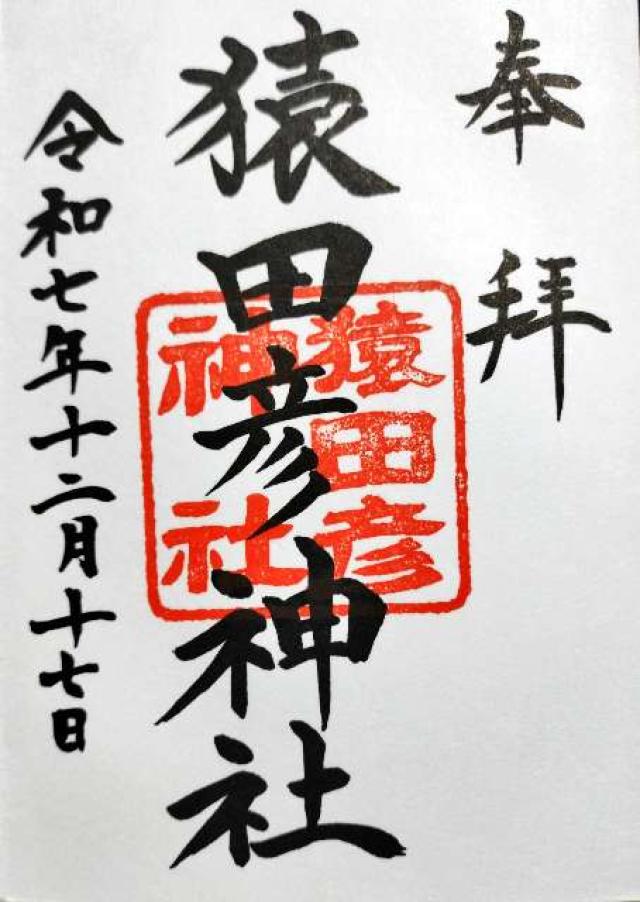 奉拝
猿田彦神社
猿田彦
神社
令和七年十二月十七日